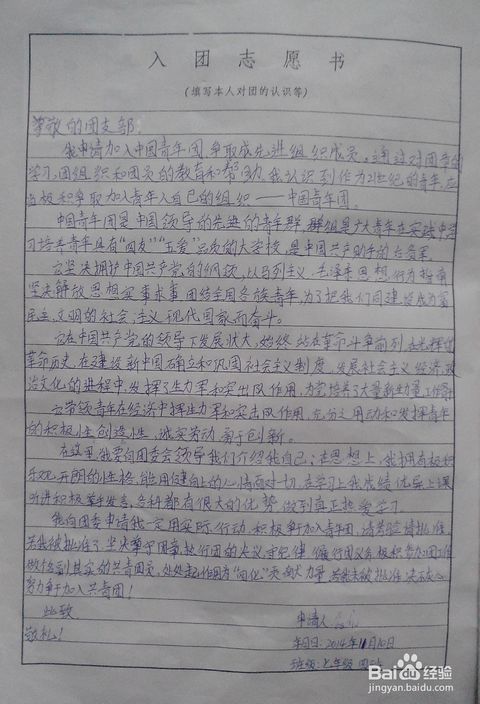 入团志愿书
(填写本人对团的认识等)
尊敬的团支部:
我申请加入中国青年团争取成先进组织成员。通过对团章的
学习,团组织和团员的教育和帮助,我认识到作为21世纪的青年,应
当极积争取加入青年人自己的组织——中国青年团。
中国青年团是中国领导的先进的青年群,群组是广大青年在实践中学
习培养青年具有“四有”“五爱”品质的大学校,是中国共产助手的后备军。
它坚决拥护中国共产党的纲领,以马列主义,毛泽东思想行为指南
坚决解放思想实事求事团结全国各族青年,为了把我们同建设成为富
民主,文明的社会主义现代国家而奋斗。
它在中国共产党的领导下发展状大,始终站在革命斗争前列在光辉的
革命历史,在建设新中国确立和巩固社会主义制度,发展社会主义经济,政
治文化的进程中发挥了生力军和突出队作用,为党培养了大量新生力量工作
它带领青年在经济中挥生力军和突击队作用,充分调动和发挥青年
的积极性创造性,诚实劳动,勇于创新。
在这里,我要向团委会领导我们介绍我自己:在思想上,我拥有极积
乐观开朗的性格,能用健向上的心情面对一切,在学习上我成绩优异上课
听讲积极举手发言,各科都有很大的优势,做到真正热爱学习。
我向团委申请我一定用实际行动积极争加入青年团,请考验请批准
若我被批准了坚决遵守团章,执行团的决议守纪律,履行团义务极积参加团工作
做名到其实的共青团员,处处起作用为“四化”贡献大力量,若我未被批准决不灰心
努力争于加入共青团!
此致
敬礼! 申请人
年月日:2014年11月10日
班级:七年级
Baidu经验
jingyan.baidu.com